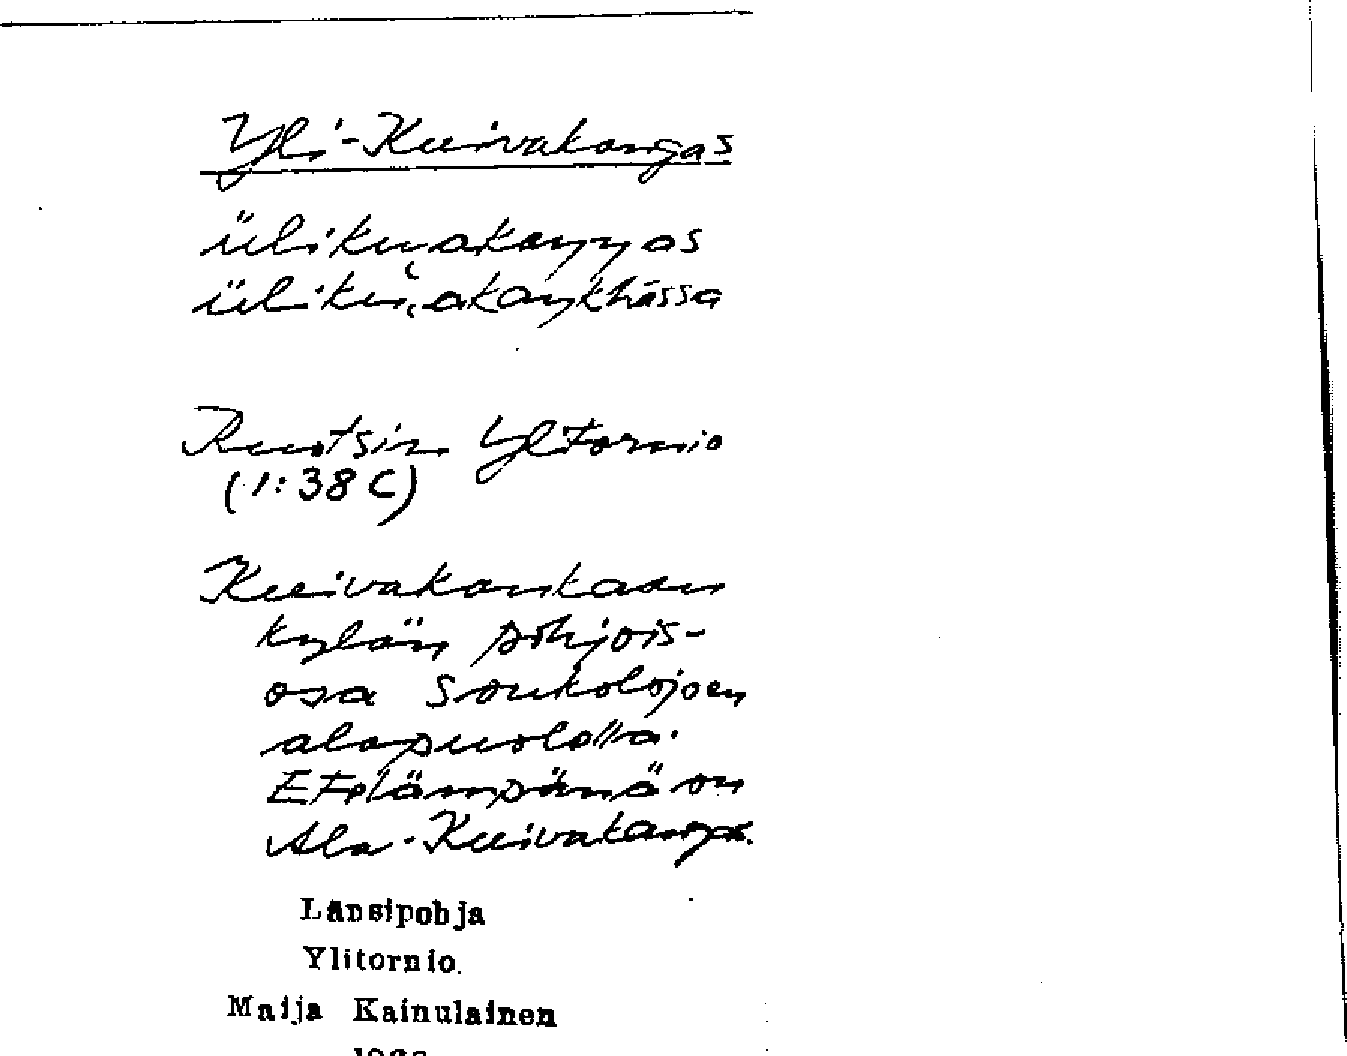 Yli-Kuivakangas
Ruotsin Ylitornio
(1:38 C)
Kuivakankaan
kylän pohjois-
osa Soukolojoen
alapuolella.
Etelämpänä on
Ala-Kuivakangas.
Länsipohja
Ylitornio.
Maija Kainulainen